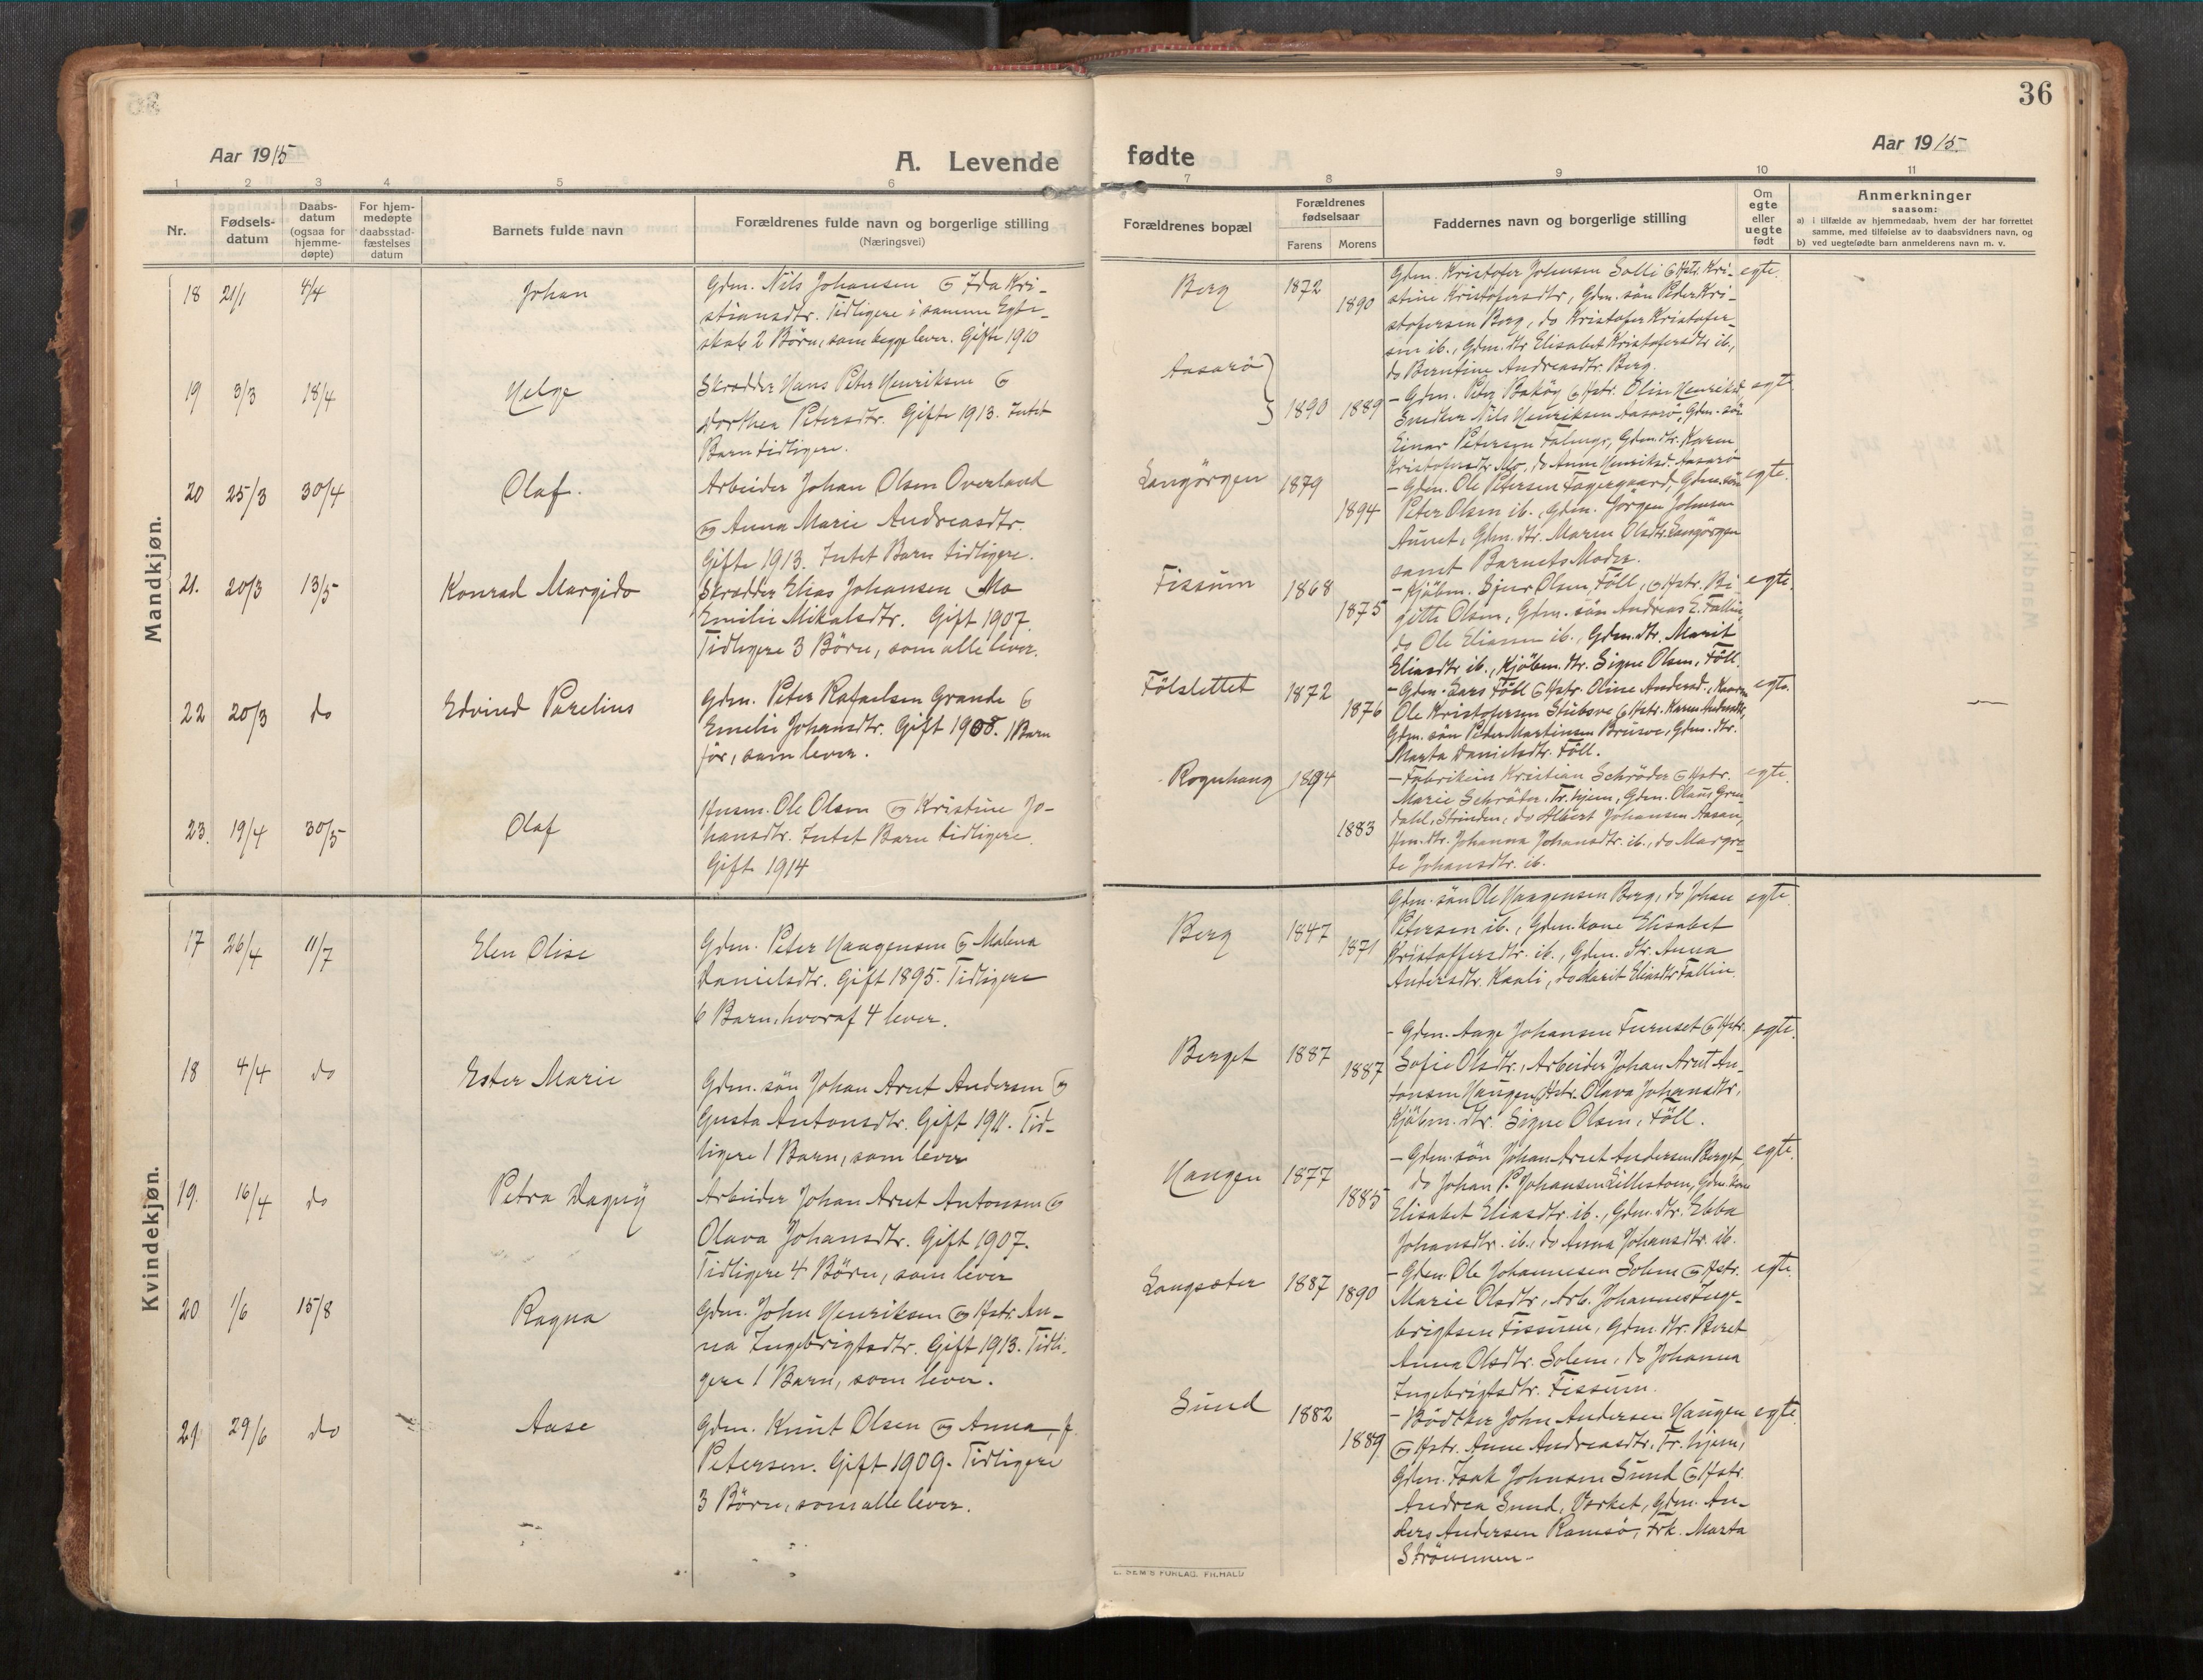 36
Aar 1915
A. Levende
fødte
Aar 1915
1 2 3 4 5 6 7 8 9 10 11
Nr.
Fødsels-
datum
Daabs-
datum
(ogsaa for
hjemme-
døpte)
For hjem-
medøpte
daabsstad-
fæstelses
datum
Barnets fulde navn
Forældrenes fulde navn og borgerlige stilling
(Næringsvei)
Forældrenes bopæl
Forældrenes
fødselsaar
Farens Morens
Faddernes navn og borgerlige stilling
Om
egte
eller
uegte
født
Anmerkninger
saasom:
a) i tilfælde av hjemmedaab, hvem der har forrettet
samme, med tilføielse av to daabsvidners navn, og
b) ved uegtefødte barn anmelderens navn m. v.
Mandkjøn.
18 21/1 4/4 Johan
Gdm. Nils Johansen og Ida Kri-
stiansdtr. Tidligere i samme Egte-
skab 2 Börn, som begge lever. Gifte 1910
Berg 1872 1890
Gdm. Kristofer Johnsen Solli og Hstr. Kri-
stine Kristofersdtr, Gdm. sön Peder Kri-
stofersen Berg, do Kristofer Kristofer-
sen ib., Gdm. dtr Elisabet Kristofersdtr ib.,
do Berntine Andreasdtr. Berg.
egte.
19 3/3 18/4 Helge
Skrædder Hans Peter Henriksen og
Dorthea Petersdtr. Gifte 1913. Intet
Barn tidligere.
Aasarö 1890 1889
- Gdm. Peter Baköy og Hstr. Olin Henriksd,
Snedker Nils Henriksen Aasarö, Gdm. sön
Einar Petersen, Gdm. dtr. Karen
Kristofersdtr Mo, do Anna Henriksd. Aasarö
egte
20 25/3 30/4 Olaf.
Arbeider Johan Olsen Overland
og Anna Marie Andreasdtr.
Gifte 1913. Intet Barn tidligere.
Langörgen 1879 1894
- Gdm. Ole Petersen Fagergaard, Gdm. sön
Peter Olsen ib., Gdm. Jörgen Johnsen
Aunet, Gdm. dtr. Maren Olsdtr. Langörgen
samt Barnets Moder.
egte.
21. 20/3 13/5 Konrad Margido
Skrædder Elias Johansen Mo
Emilie Mikalsdtr. Gift 1907.
Tidligere 3 Börn, som alle lever.
Fissum 1868 1875
- Kjöbm. Sjur Olsen, Föll, og Hstr. Bi-
gitte Olsen, Gdm. sön Andreas E. Fallin,
do Ole Eliasen ib., Gdm. dtr. Marit
Eliasdtr ib., Kjöbm. dtr. Signe Olsen, Föll.
egte.
22 20/3 do Edvind Parelius
Gdm. Peter Rafaelsen Grande og
Emelie Johansdtr. Gift 1908. 1 Barn
för, som lever.
Fölslettet 1872 1876
- Gdm. Lars Föll og Hstr. Oline Andersd.,
Ole Kristofersen Stubsve og Hstr. Karen Andersdtr,
Gdm. sön Peder Martinsen Brusve, Gdm. dtr.
Marta Danielsdtr. Föll.
egte.
23. 19/4 30/5 Olaf
Husm. Ole Olsen og Kristine Jo-
hansdtr. Intet Barn tidligere.
Gift 1914
Rognhaug 1894 1883
- Fabrikein Kristian Schröder og Hstr.
Marie Schröder, Tr.hjem, Gdm. Olaus Gren-
dahl, Strinden, do Albert Johansen Aasan,
Hm. dtr. Johanna Johansdtr. ib., do Margre-
te Johansdtr. ib.
egte.
Kvindekjøn.
17 26/4 11/7 Elen Olise
Gdm. Peter Haagensen og Malena
Danielsdtr. Gift 1895. Tidligere
6 Barn, hvoraf 4 lever.
Berg 1847 1871
Gdm. sön Ole Haagensen Berg, do Johan
Petersen ib., Gdm. kone Elisabet
Kristoffersdtr. ib., Gdm. dtr. Anna
Andersdtr. Kaali, do Marit Eliasdtr Fallin.
egte
18 4/4 do Ester Marie
Gdm. sön Johan Arnt Andersen og
Gusta Antonsdtr. Gift 1911. Tid-
ligere 1 Barn, som lever
Berget 1887 1887
- Gdm. Aage Johansen Furuset og Hstr.
Sofie Olsdtr., Arbeider Johan Arnt An-
tonsen Haugen, Hstr. Olava Johansdtr,
Kjöbm. dtr. Signe Olsen, Föll.
egte.
19. 16/4 do Petra Dagny
Arbeider Johan Arnt Antonsen og
Olava Johansdtr. Gift 1907.
Tidligere 4 Börn, som lever
Haugen 1877 1885
- Gdm. sön Johan Arnt Andersen Berget,
do Johan P. Johansen Lillistoen, Gdm. kone
Elisabet Eliasdtr. ib., Gdm. dtr. Ebba
Johansdtr. ib., do Anna Johansdtr. ib.
egte.
20 1/6 15/8 Ragna
Gdm. John Henriksen og Hstr. An-
na Ingebrigtsdtr. Gift 1913. Tidli-
gere 1 Barn, som lever.
Langsæter 1887 1890
- Gdm. Ole Johannesen Solem og Hstr.
Marie Olsdtr, Arb. Johannes Inge-
brigtsen Fissum, Gdm. dtr. Beret
Anna Olsdtr. Solem, do Johanna
Ingebrigtsdtr. Fissum.
egte.
21 29/6 do Aase
Gdm. Knut Olsen og Anna, f.
Petersen. Gift 1909. Tidligere
3 Börn, som alle lever.
Sund 1882 1889.
- Bödtker John Andersen Haugen
og Hstr. Anne Andreasdtr, Tr. hjem,
Gdm. Isak Johnsen Sund og Hstr.
Andrea Sund, Værket, Gdm. An-
ders Andersen Ramsö, Frk. Marta
Strömmen.
egte.
E. SEM'S FORLAG, FR.HALD